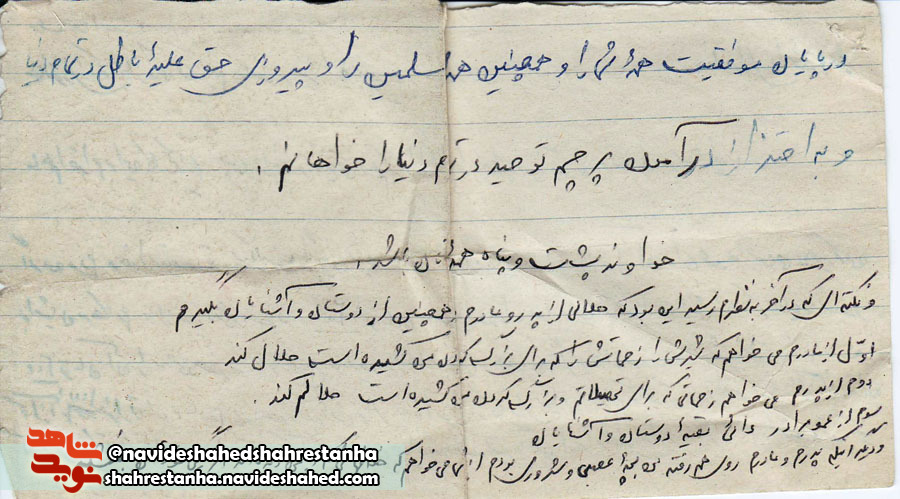 در پایان موفقیت همهٔ شما را و همچنین همه مسلمین را و پیروزی حق علیهٔ باطل در تمام دنیا
و به اهتزاز در آمدن پرچم توحید در تمام دنیا را خواهانم.
خداوند پشت و پناه همه باشد.
و نکته‌ای که در آخر به نظرم رسید این بود که حلالی از پدر و مادرم و همچنین از دوستان و آشنایان بگیرم
اوّل از مادرم می خواهم که شیرش را و زحماتش را که برای بزرگ کردن من کشیده است حلال کند
دوم از پدرم می خواهم زحماتی که برای تحصیلاتم و بزرگ کردن من کشیده است حلالم کند.
سوم از برادر بقیهٔ دوستان و آشنایان
پدرم و مادرم روی هم رفته من بچهٔ عصبی و شروری بودم از آنها می خواهم که
شاهد
نوید
@navideshahedshahrestanha
shahrestanha.navideshahed.com